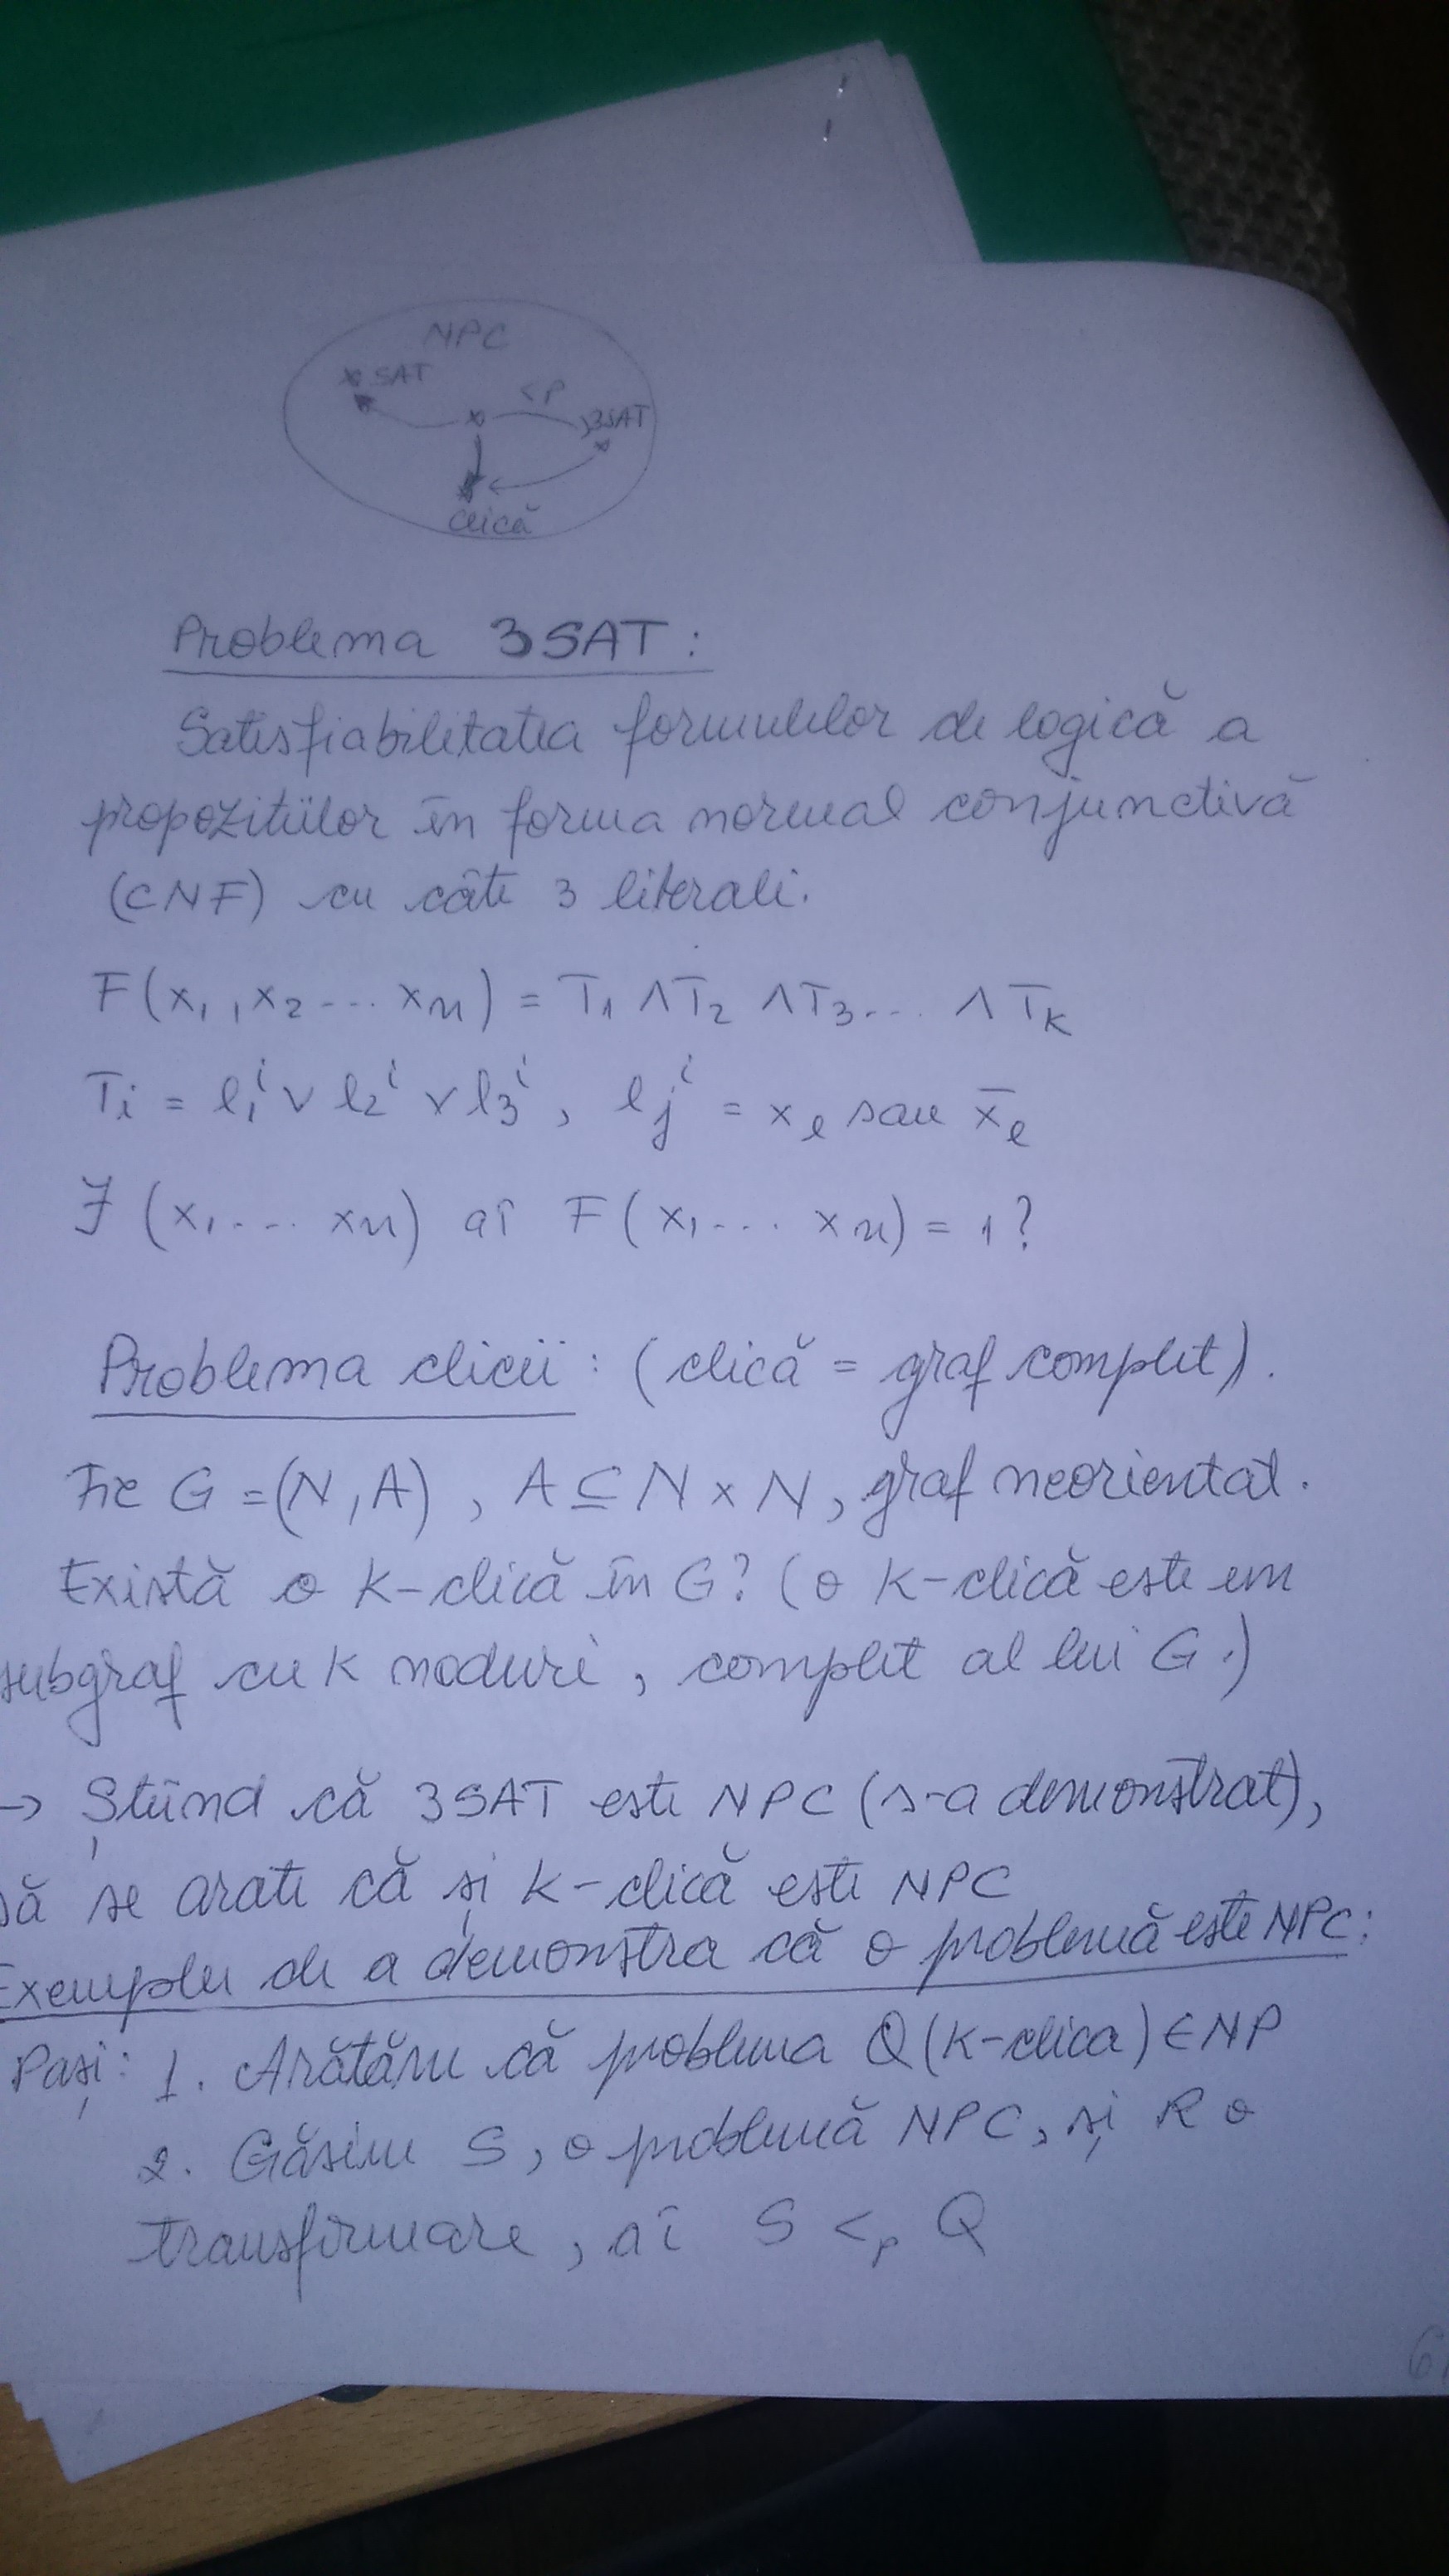 NPC
SAT
<P
3SAT
clică
Problema 3SAT:
Satisfiabilitatea formulelor de logică a
propozitiilor în forma normal conjunctivă
(CNF) cu câte 3 literali.
F(x₁, x₂ ... xₙ) = T₁ ∧ T₂ ∧ T₃ ... ∧ Tₖ
Tᵢ = l₁ⁱ ∨ l₂ⁱ ∨ l₃ⁱ, lⱼⁱ = xₗ sau x̄ₗ
∃ (x₁ ... xₙ) aî F(x₁ ... xₙ) = 1?
Problema clicii: (clică = graf complet).
Fie G = (N, A), A ⊆ N × N, graf neorientat.
Există o k-clică în G? (o k-clică este un
subgraf cu k noduri, complet al lui G.)
→ Știind că 3SAT este NPC (s-a demonstrat),
să se arate că și k-clică este NPC
Exemplu de a demonstra că o problemă este NPC:
Pași: 1. Arătăm că problema Q (k-clica) ∈ NP
2. Găsim S, o problemă NPC, și R o
transformare, aî S <ₚ Q